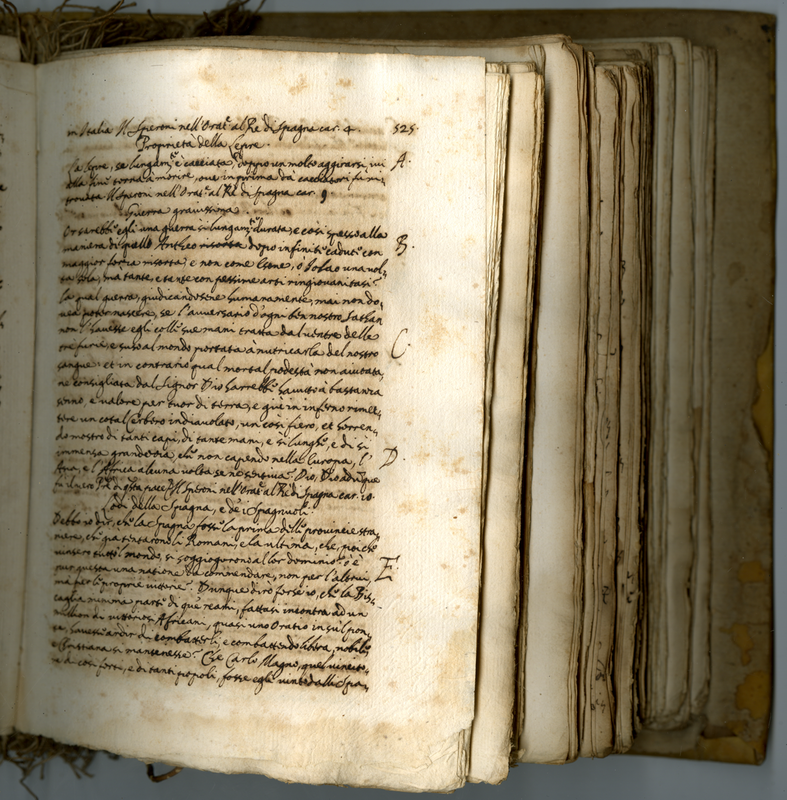 in Italia. Il Speroni nell'Orat.e al Re di Spagna car. 4. 525.
Proprietà della Lepre.
La lepre, se lungam.te è cacciata, doppo un molto aggirarsi, ivi A.
alla fine torna à morire, ove in prima da cacciatori fu ri,
trovata. Il Speroni nell'Orat.e al Re di Spagna car. 9
Guerra gravissima.
Or sarebbe egli una guerra si lungam.te durata, e cosi spesso alla
maniera di quello Antheo risorta dopo infinite cadute con B.
maggior forza risorta, e non come Esone, ò Iolao una vol,
ta sola, ma tante, e tante con pessime arti ringiovanitasi?
La qual guerra, giudicandosene humanamente, mai non do,
vea poter nascere, se l'avversario d'ogni ben nostro Sathan
non l'havesse egli colle sue mani tratta dal ventre delle
tre furie, e suso al mondo portata à nutricarla del nostro C.
sangue: et in contrario qual mortal podestà non aiutata,
ne consigliata dal Signor Dio harrebbe havuto à bastanza
senno, e valore per tuor di terra, e giù in inferno rimet,
tere un cotal Cerbero indiavolato, un cosi fiero, et horren,
do mostro di tanti capi, di tante mani, e si lunghe, e di si
immensa grandezza, che non capendo nella Europa, l' D.
Asia, e l'Africa alcuna volta se ne sentiva? Dio, Dio adunque
fu il vero di q.sta pace. Il Speroni nell'Orat.e al Re di Spagna car. 10.
Lodi della Spagna, e de i Spagnuoli.
Debbo io dir, che la Spagna fosse la prima delle provincie stra,
niere, che già tentarono li Romani, e la ultima, che, poiche
vinsero tutto 'l mondo, si soggiogarono al lor dominio? ò è
pur questa una natione da commendare, non per l'altrui, E.
ma per le proprie vittorie? Dunque dirò forse io, che la Bis,
caglia minima parte di que reami, fattasi incontra ad un
million di vittoriosi Africani, quasi uno Oratio in sul pon,
te, havesse ardir di combatterli, e combattendo libera, nobile,
e Christiana si mantenesse? Che Carlo Magno, quel vincito,
re di cosi forti, e di tanti popoli, fosse egli vinto dalli Spa,